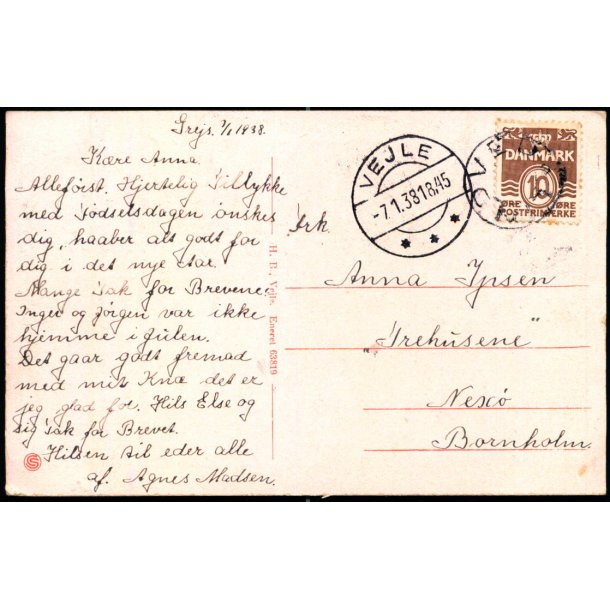 Grejs. 7/1 1938.
Kære Anna.
Alleførst. Hjertelig Tillykke
med Fødselsdagen ønskes
dig, haaber alt godt for
dig i det nye Aar.
Mange Tak for Brevene.
Inger og Jörgen var ikke
hjemme i Julen.
Det gaar godt fremad
med mit Knæ det er
jeg glad for. Hils Else og
sig Tak for Brevet.
Hilsen til eder alle
af. Agnes Madsen.
H. B., Vejle. Eneret 63819
VEJLE
-7.1.38 18,45
DANMARK
10
ØRE ØRE
POSTFRIMÆRKE
Frk.
Anna Ipsen
"Trehusene"
Nexö
Bornholm.